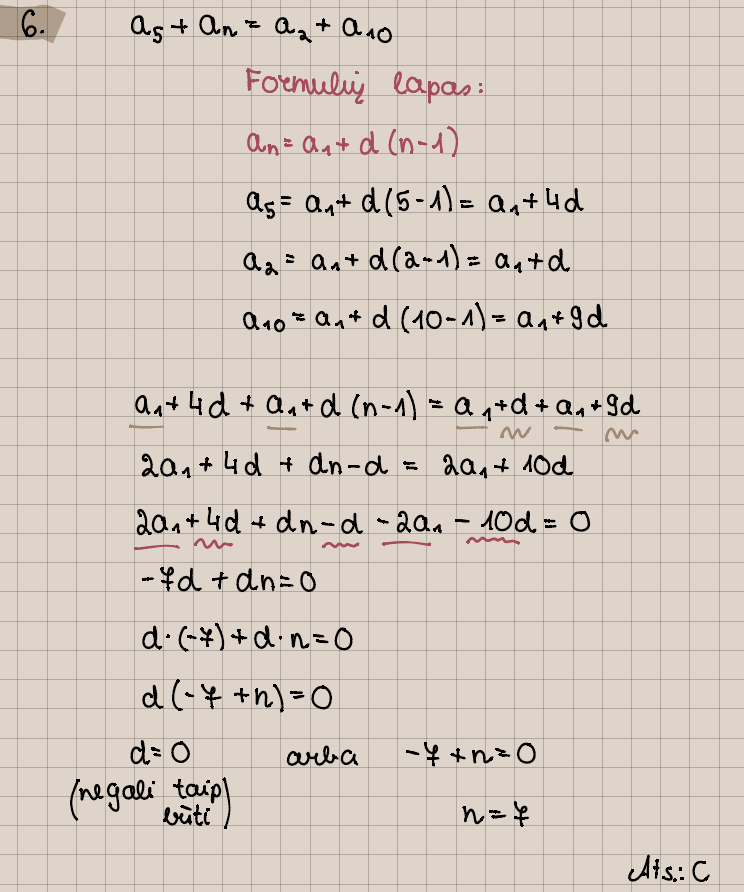 6. a₅ + aₙ = a₂ + a₁₀
Formulių lapas:
aₙ = a₁ + d (n-1)
a₅ = a₁ + d(5-1) = a₁ + 4d
a₂ = a₁ + d(2-1) = a₁ + d
a₁₀ = a₁ + d (10-1) = a₁ + 9d
a₁ + 4d + a₁ + d (n-1) = a₁ + d + a₁ + 9d
2a₁ + 4d + dn - d = 2a₁ + 10d
2a₁ + 4d + dn - d - 2a₁ - 10d = 0
-7d + dn = 0
d · (-7) + d · n = 0
d (-7 + n) = 0
d = 0 arba -7 + n = 0
(negali taip
būti) n = 7
Ats.: C